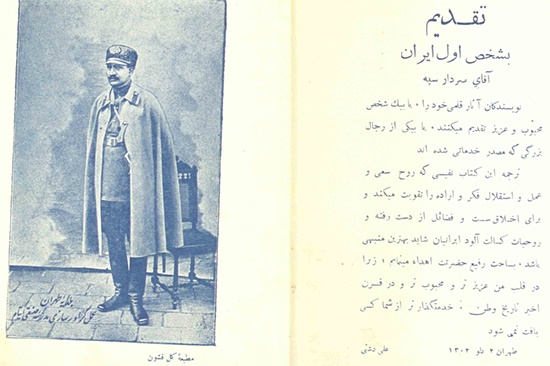 تقدیم
بشخص اول ایران
آقای سردار سپه
نویسندکان آثار قلمی خود را ، یا بیك شخص
محبوب و عزیز تقدیم میکنند ، یا بیکی از رجال
بزرگی که مصدر خدماتی شده اند
ترجمه این کتاب نفیسی که روح سعی و
عمل و استقلال فکر و اراده را تقویت میکند و
برای اخلاق سست و فضائل از دست رفته و
روحیات کسالت آلود ایرانیان شاید بهترین منبهی
باشد ، بساحت رفیع حضرتت اهداء مینمایم ، زیرا
در قلب من عزیز تر و محبوب تر و در قرن
اخیر تاریخ وطن ، خدمتگذار تر از شما کسی
یافت نمی شود
طهران ۲ دلو ۱۳۰۲
علی دشتی
طهران
مطبعة کل قشون